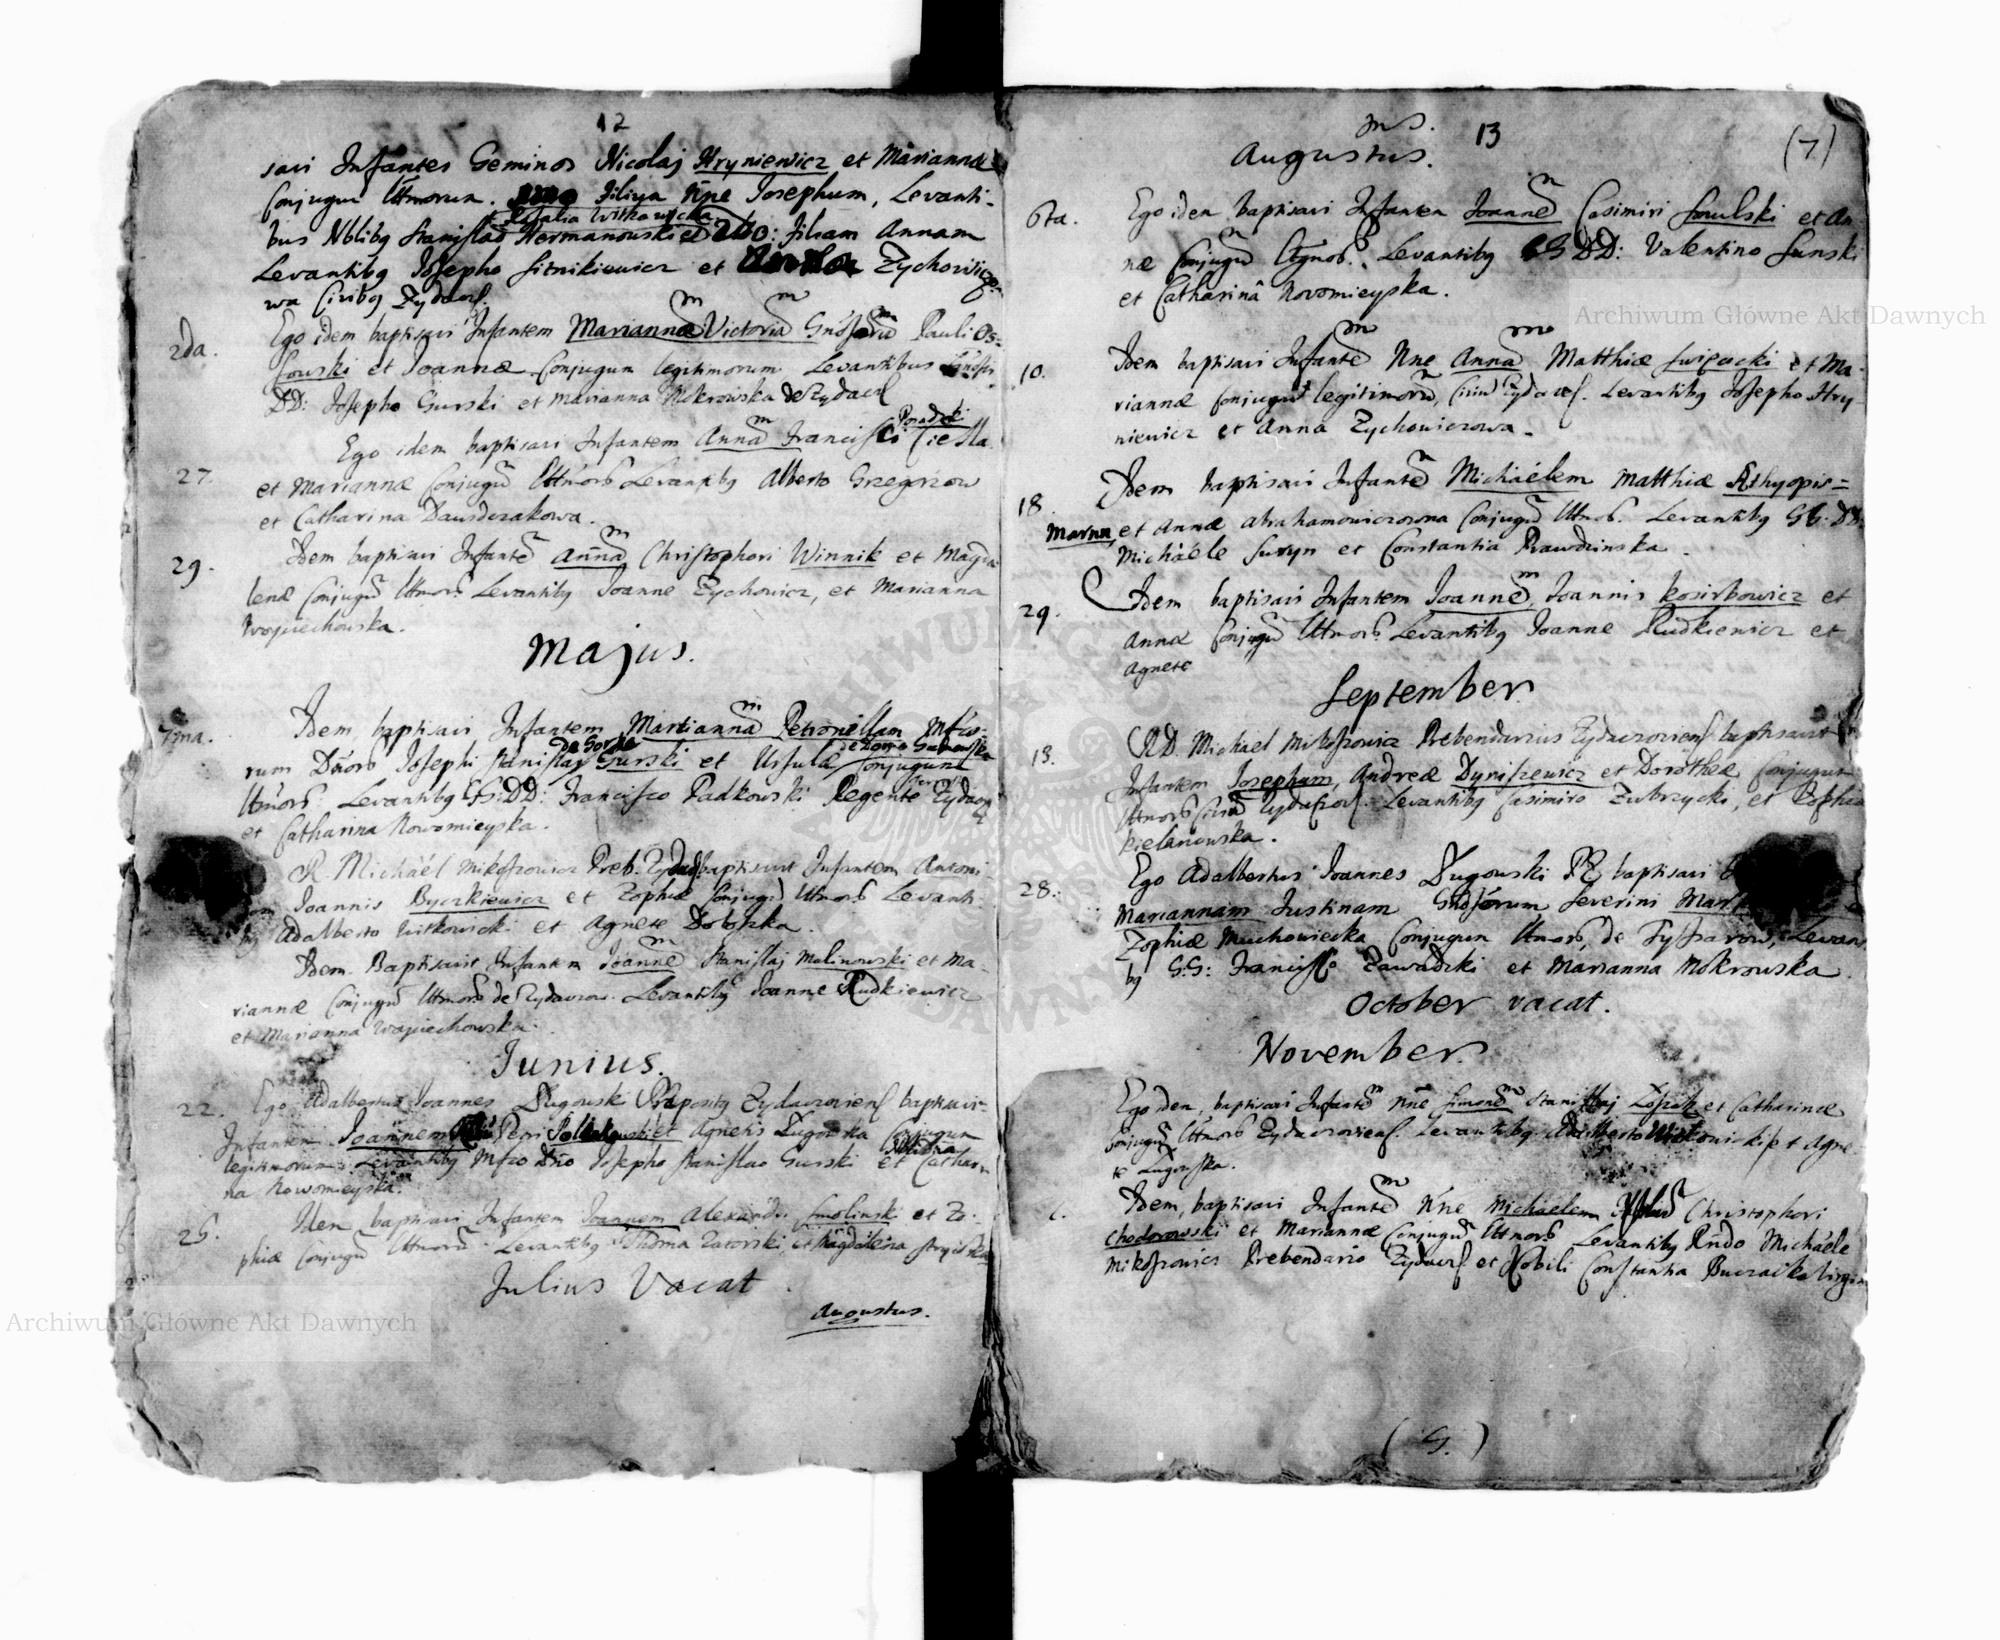 12
savi Infantes Geminos Nicolaj Hryniewicz et Mariannæ
Conjugum Utmorum. filium Nne Josephum, Levanti-
Rosalia Witkowicka
bus Nblibg Stanislao Hermanowski et 2do: filiam Annam
Levantibg Josepho Sitnikiewicz et Zychowiczo-
wa Civibg Zydacf.
2da. Ego idem baptisavi Infantem Mariannã Victoriã Gnosorũ Pauli Os-
sowski et Joannæ Conjugum legitimorum Levantibus
DD: Josepho Gurski et Marianna Mokrowska de Zydacf
27. Ego idem baptisavi Infantem Annã Francisci Ciesla
et Mariannæ Conjugũ Uttmors Levantibg Alberto Grzegorzow
et Catharina Dausderakowa.
29. Idem baptisavi Infantẽ Annã Christophori Winnik et Magda-
lenæ Conjugũ Uttmors Levantibg Joanne Zychowicz, et Marianna
Woyciechowska.
Majus.
7ma. Idem baptisavi Infantem Martiannã Petronillam Mfco-
de Gorki
rum Dnors Josephi Stanislaj Gurski et Ursulæ Conjugum
Utmors Levantibg GG: DD: Francisco Padkowski Regente Zydacz
et Catharina Nowomieyska.
R. Michäel Mikoszowicz Preb. Zydacf baptisavit Infantem Antoni-
um Joannis Byczkiewicz et Zophiæ Conjugũ Utmors Levanti-
bg Adalberto Witkowicki et Agnete Doboszka.
Idem Baptisavit Infantem Joannẽ Stanislaj Malinowski et Ma-
riannæ Conjugũ Utmors de Zydaczow. Levantibg Joanne Rudkiewicz
et Marianna Woyciechowska.
Junius.
22. Ego Adalbertus Joannes Długowski Præpositg Zydaczoviensf baptisavi
Infantem Joannem Petri et Agnetis Ługowska Conjugum
legitimorum Levantibg Mfco Dno Josepho Stanislao Gurski et Cathari-
na Nowomieyska.
25. Idem baptisavi Infantem Joannem Alexandri Smolinski et Zo-
phiæ Conjugũ Uttmorũ Levantibg Thoma Zatorski, et Magdalena
Julius Vacat.
Augustus.
ms. 13 (7)
Augustus.
6ta. Ego idem baptisavi Infantem Joannẽ Casimiri Smulski et An-
næ Conjugũ Levantibg GG DD: Valentino Sunski
et Catharinâ Novomieyska.
10. Idem baptisavi Infantẽ Nne Annã Matthiæ Swięcicki et Ma-
riannæ Conjugũ legitimorũ, Civiũ Zydacf. Levantibg Josepho Hry-
niewicz et Anna Zychowiczowa.
18. Idem baptisavi Infantẽ Michäélem Matthiæ Æthyopis=
et Annæ Abrahamowiczowna Conjugũ Uttmors. Levantibg GG: DD:
Michäéle Suryn et Constantia Prawdzinska.
29. Idem baptisavi Infantem Joannẽ, Joannis Kosirbowicz et
Annæ Conjugũ Uttmors Levantibg Joanne Rudkiewicz et
Agnete
September.
13. RD. Michäel Mikoszowicz Prebendarius Zydaczoviensf baptisavit
Infantem Josephum, Andreæ Dyniszewicz et Dorotheæ Conjugum
Utmors Civiũ Zydaczovf. Levantibg Casimiro Zubrzycki, et Zophia
Kielanowska.
28. Ego Adalbertus Joannes Długowski PZ baptisavi
Mariannam Justinam Gnosorum Severini
Zophiæ Muchowiecka Conjugum Utmors, de Levanti-
bg G.G: Francisco Zawadzki et Marianna Mokrowska
October vacat.
November.
Ego idem, baptisavi Infantẽ Nne Simonẽ Stanislaj et Catharinæ
Conjugũ Uttmors Zydaczoviensf. Levantibg Adalberto Witkowicki et Agne-
te Ługowska.
Idem, baptisavi Infantẽ Nne Michaelem Christophori
Chodorowski et Mariannæ Conjugũ Uttmors Levantibg Rndo Michäele
Mikoszowicz Prebendario Zydacf et Nobili Constantia Buczacka Virgine
Archiwum Główne Akt Dawnych
Archiwum Główne Akt Dawnych